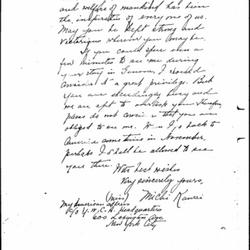 and welfare of mankind has been
the inspiration of every one of us.
May you be kept strong and
victorious wherever you may be.
If you could spare even a
few minutes to see me during
your stay in Geneva, I should
consider it a great privilege. But
you are exceedingly busy and
we are apt to
please do not
obliged to see me. I go back to
America sometime in November,
perhaps I shall be allowed to see
you there.
With best wishes
Very sincerely yours,
(Miss) Michi Kawai
My American address
c/o Y.W.C.A. Headquarters
600 Lexington Ave
New York City